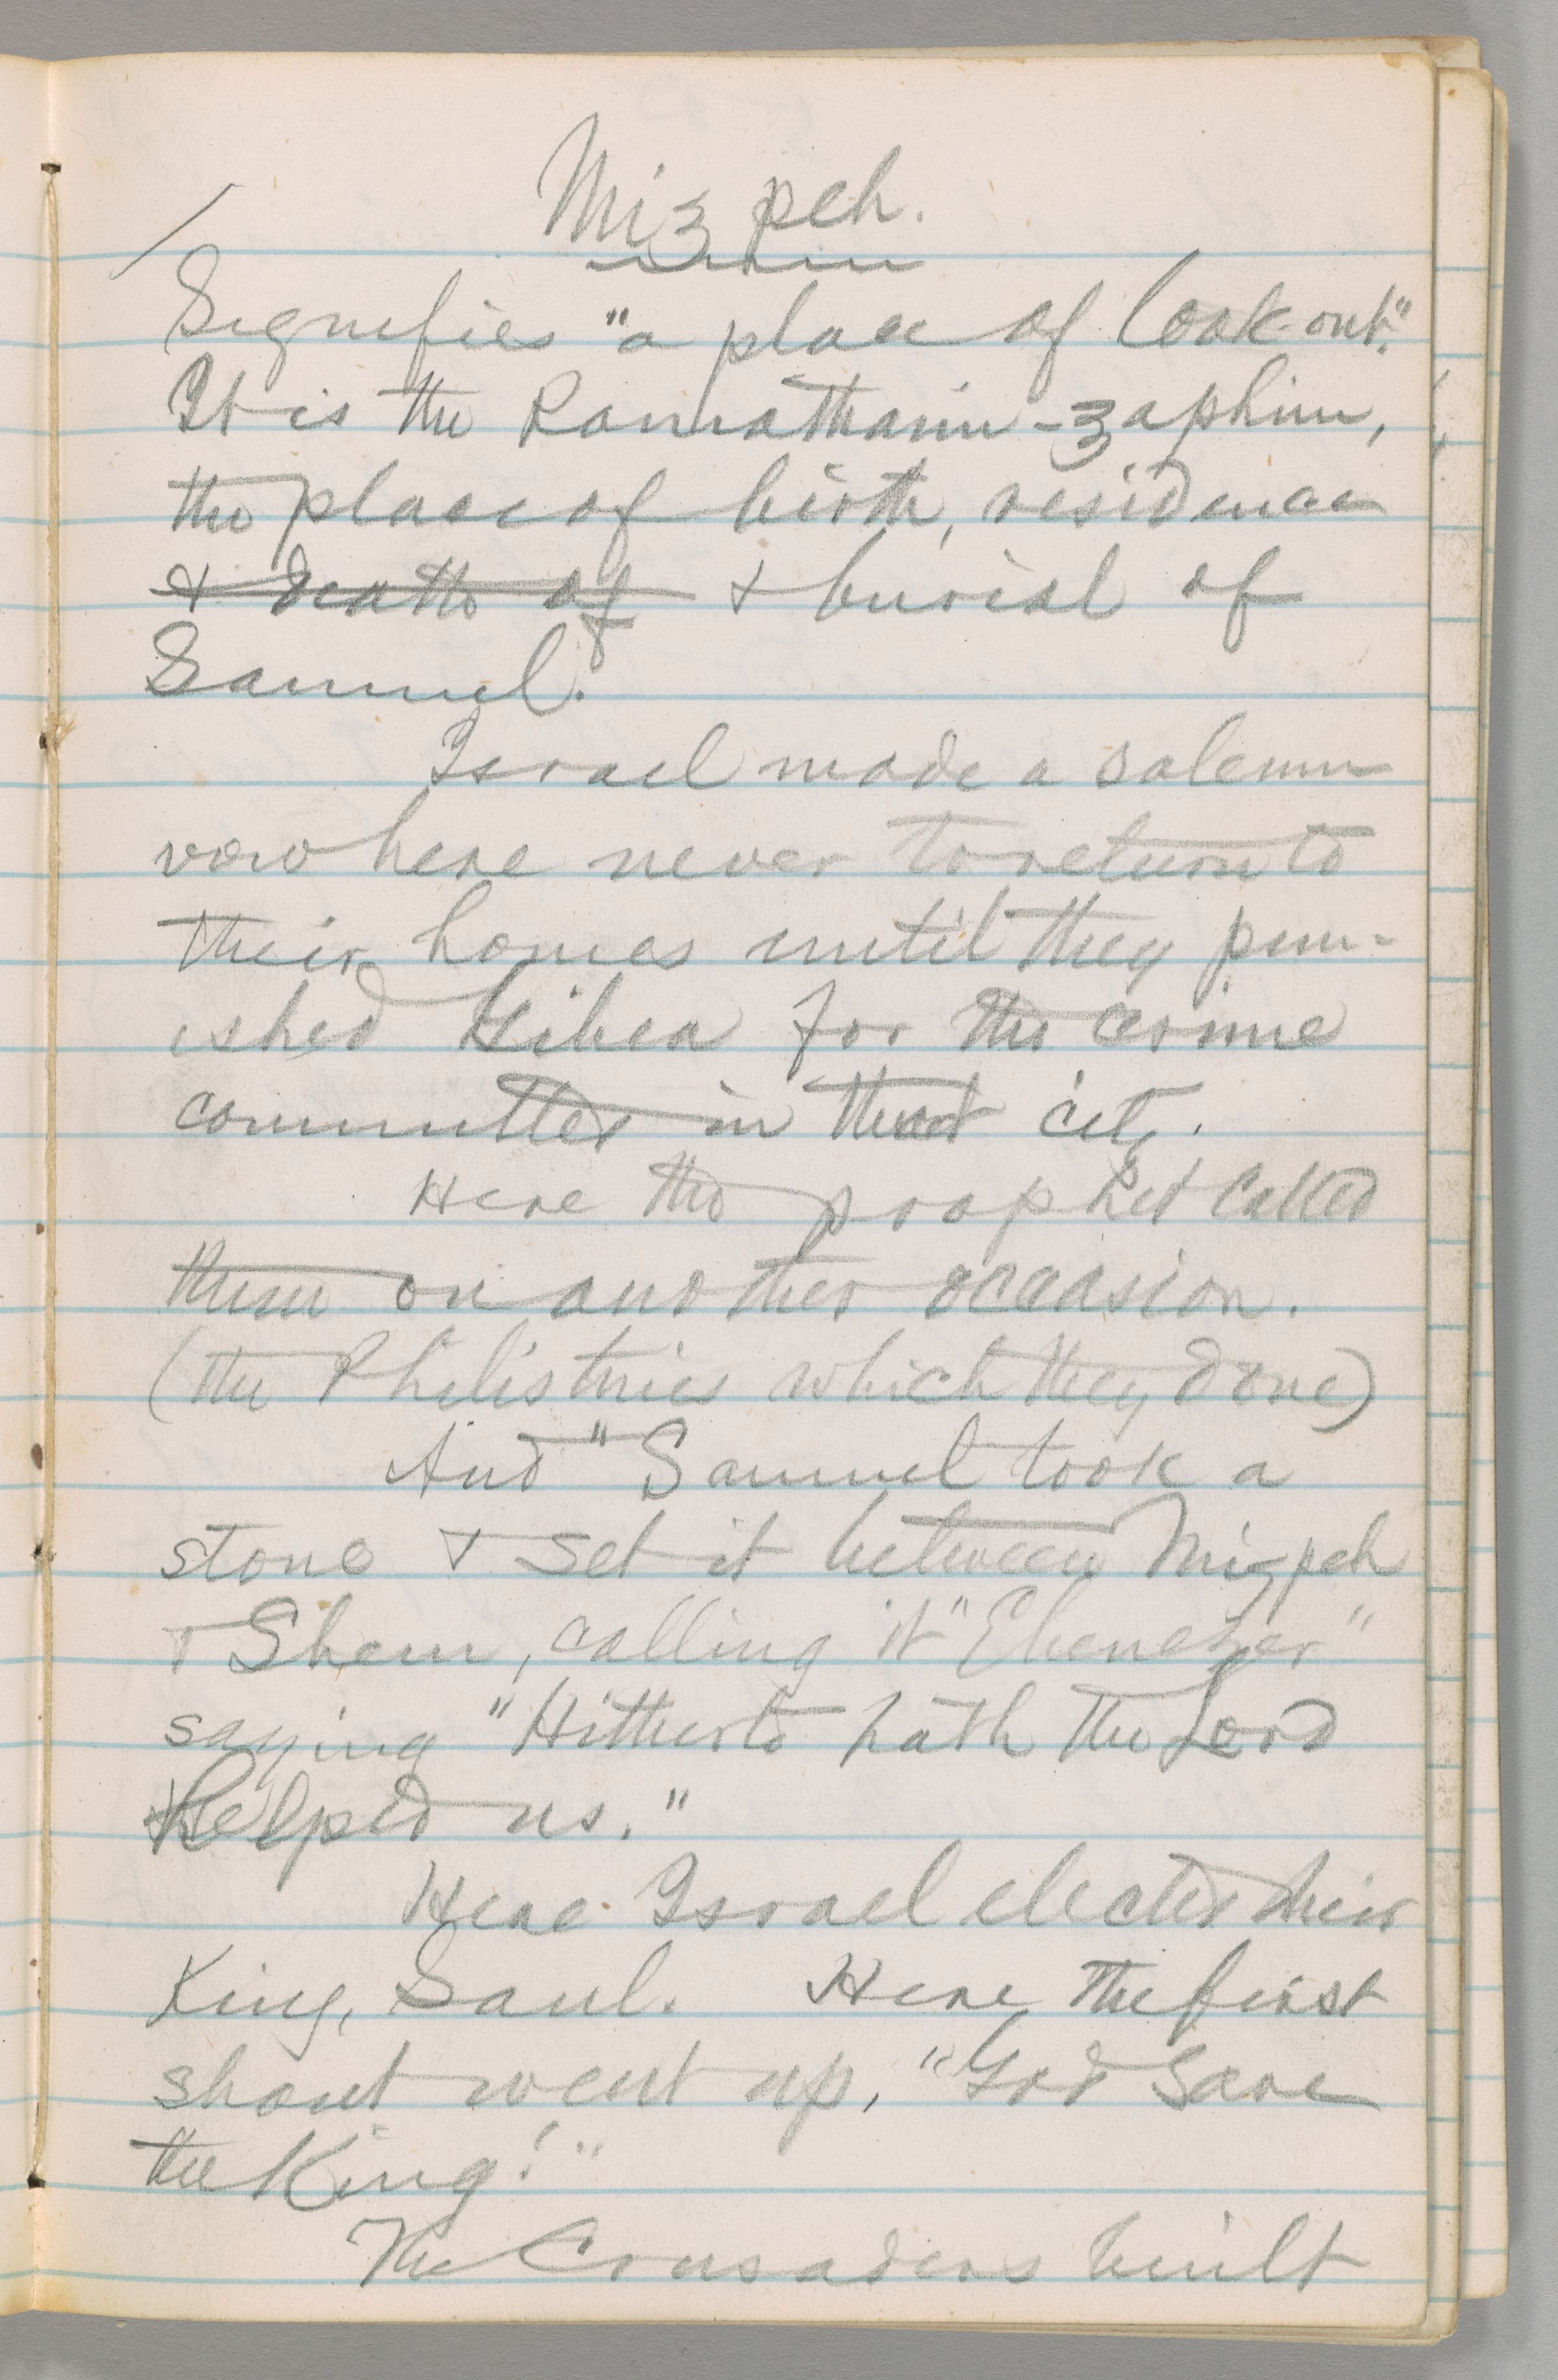 Mizpeh.
Signifies "a place of look-out."
It is the Ramathaim-zaphim,
the place of birth, residence
& death of & burial of
Samuel.
Israel made a solemn
vow here never to return to
their homes until they pun-
ished Gibea for the crime
committed in that city.
Here the prophet called
them on another occasion.
(the Philistines which they done)
And "Samuel took a
stone & set it between Mizpeh
& Shem, calling it "Ebenezer"
saying "Hitherto hath the Lord
helped us."
Here Israel elected their
King, Saul. Here the first
shout went up, "God save
the King!"
The Crusaders built